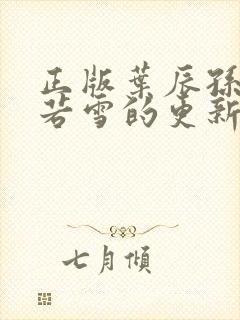 正版葉辰孫
若雪的更新
七月傾